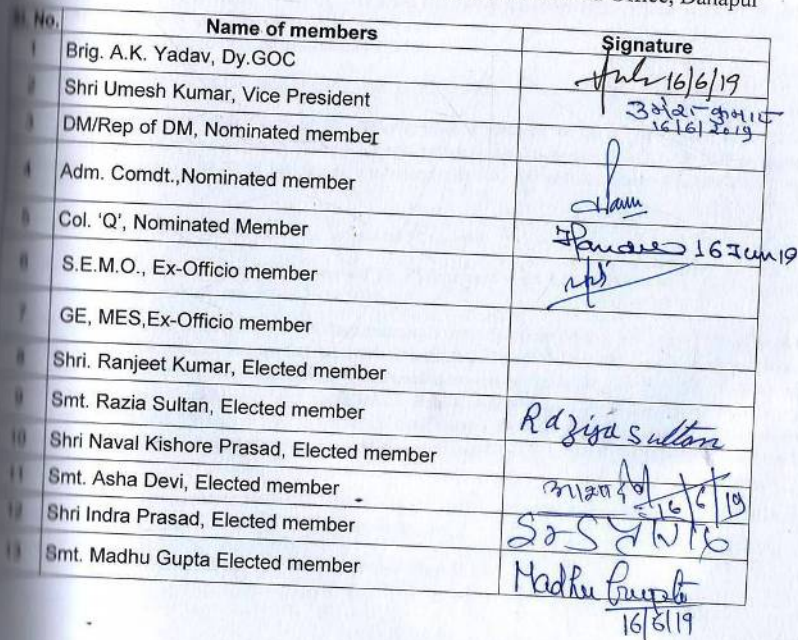 Danapur
Sl. No. Name of members Signature
1 Brig. A.K. Yadav, Dy.GOC 16/6/19
2 Shri Umesh Kumar, Vice President उमेश कुमार
16/6/2019
3 DM/Rep of DM, Nominated member
4 Adm. Comdt.,Nominated member
5 Col. 'Q', Nominated Member 16 Jun 19
6 S.E.M.O., Ex-Officio member
7 GE, MES,Ex-Officio member
8 Shri. Ranjeet Kumar, Elected member
9 Smt. Razia Sultan, Elected member Raziya Sultan
10 Shri Naval Kishore Prasad, Elected member
11 Smt. Asha Devi, Elected member 16/6/19
12 Shri Indra Prasad, Elected member
13 Smt. Madhu Gupta Elected member Madhu Gupta
16/6/19